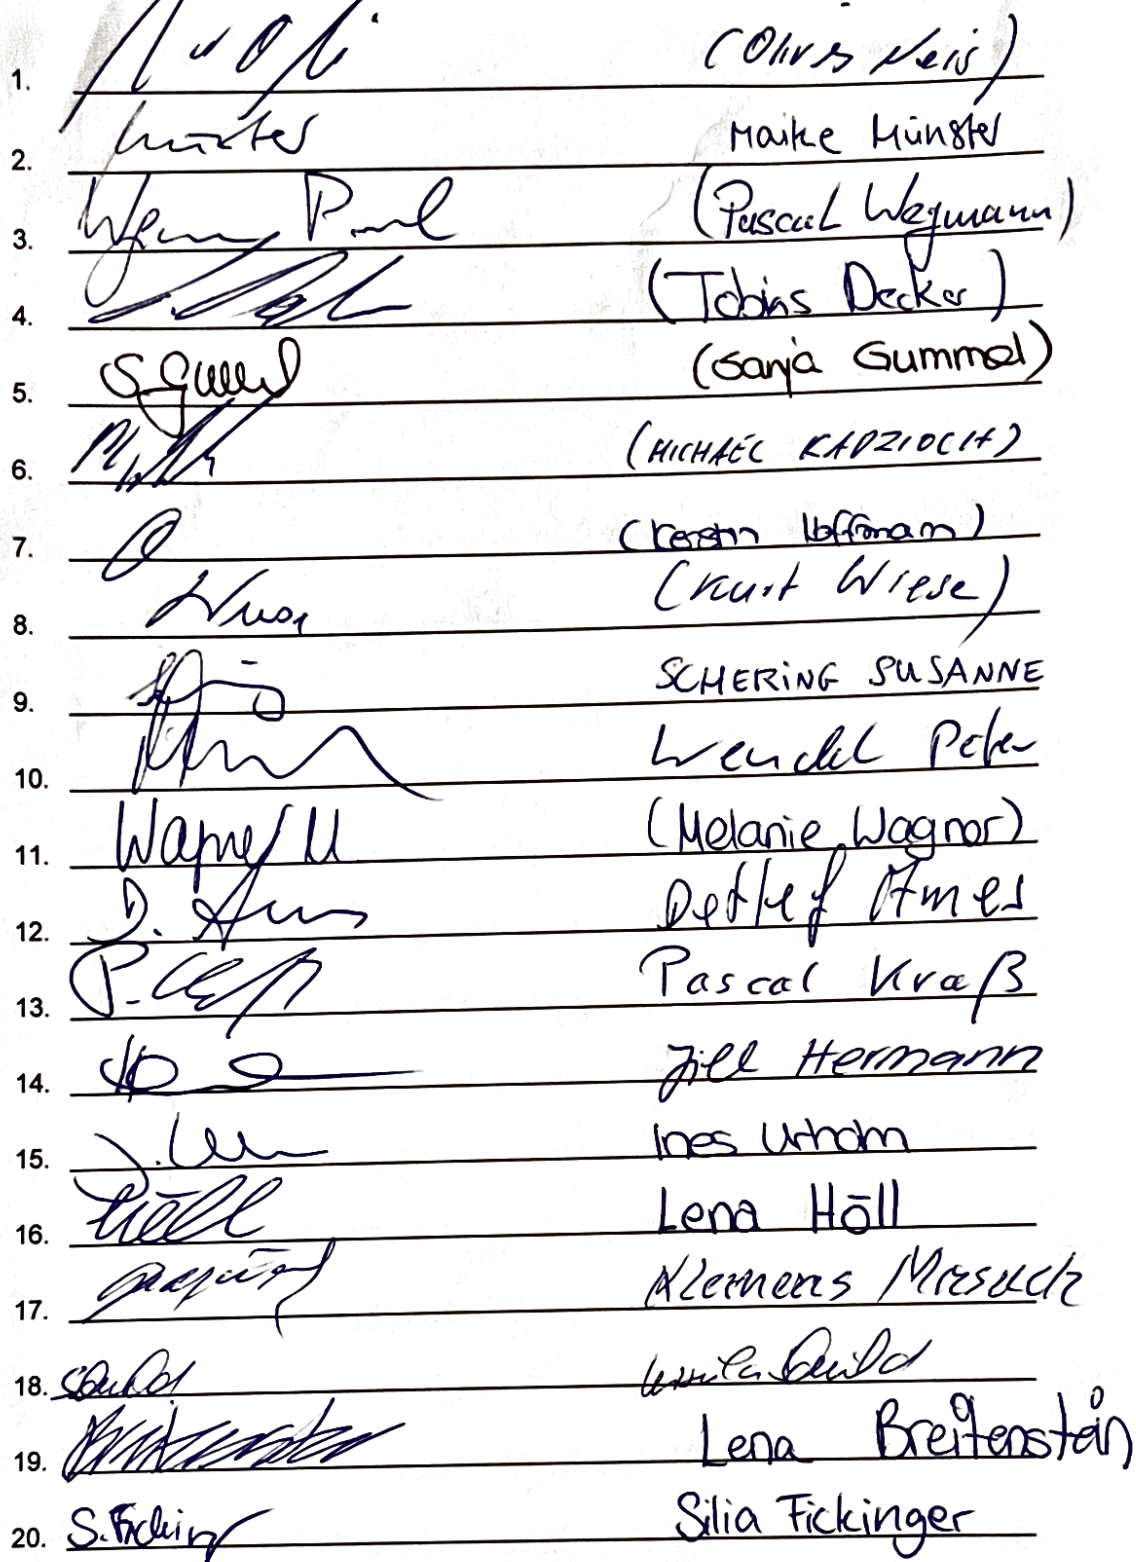 1. (Oliver Neis)
2. Münster Maike Münster
3. (Pascal Wegmann)
4. (Tobias Decker)
5. S. Gummel (Sanja Gummel)
6. (MICHAEL KADZIOCH)
7. (Kerstin Hoffmann)
8. Wiese (Kurt Wiese)
9. SCHERING SUSANNE
10. Wendel Peter
11. Wagner M (Melanie Wagner)
12. D. Ames Detlef Ames
13. P. Kraß Pascal Kraß
14. Jill Hermann
15. Ines Urhahn
16. Höll Lena Höll
17. Klemens
18.
19. Lena Breitenstein
20. S. Ficking Silia Fickinger